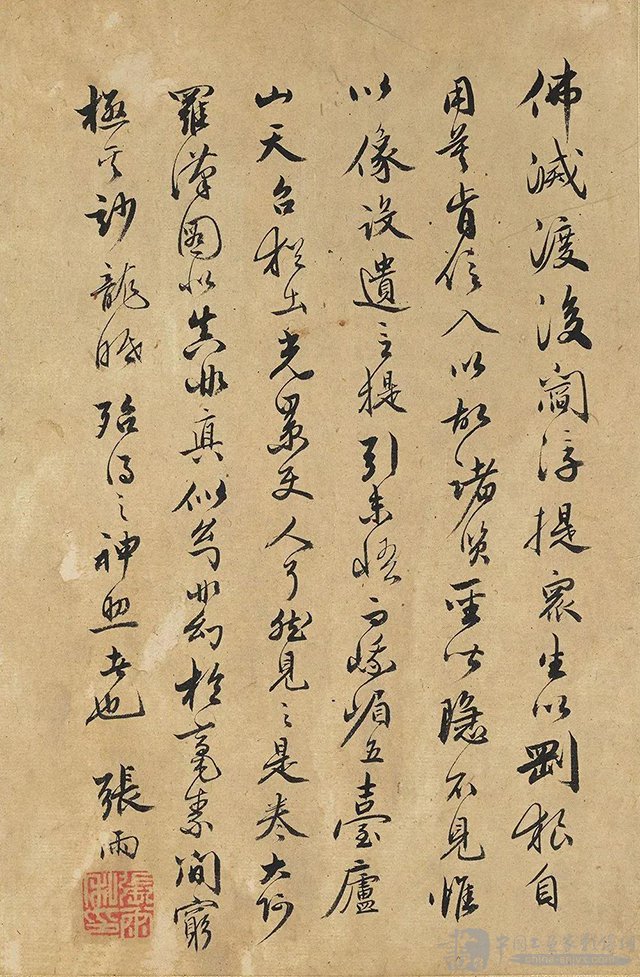 佛滅渡後閻浮提眾生以剛狠自
用莫肯信入以故諸賢聖皆隱不見惟
以像設遺言提引未悟而峨嵋五臺廬
山天台猶出光景使人了然見之是卷大阿
羅漢圖似真非真似幻非幻於毫素間窮
極其妙龍眠殆得之神照者也 張雨